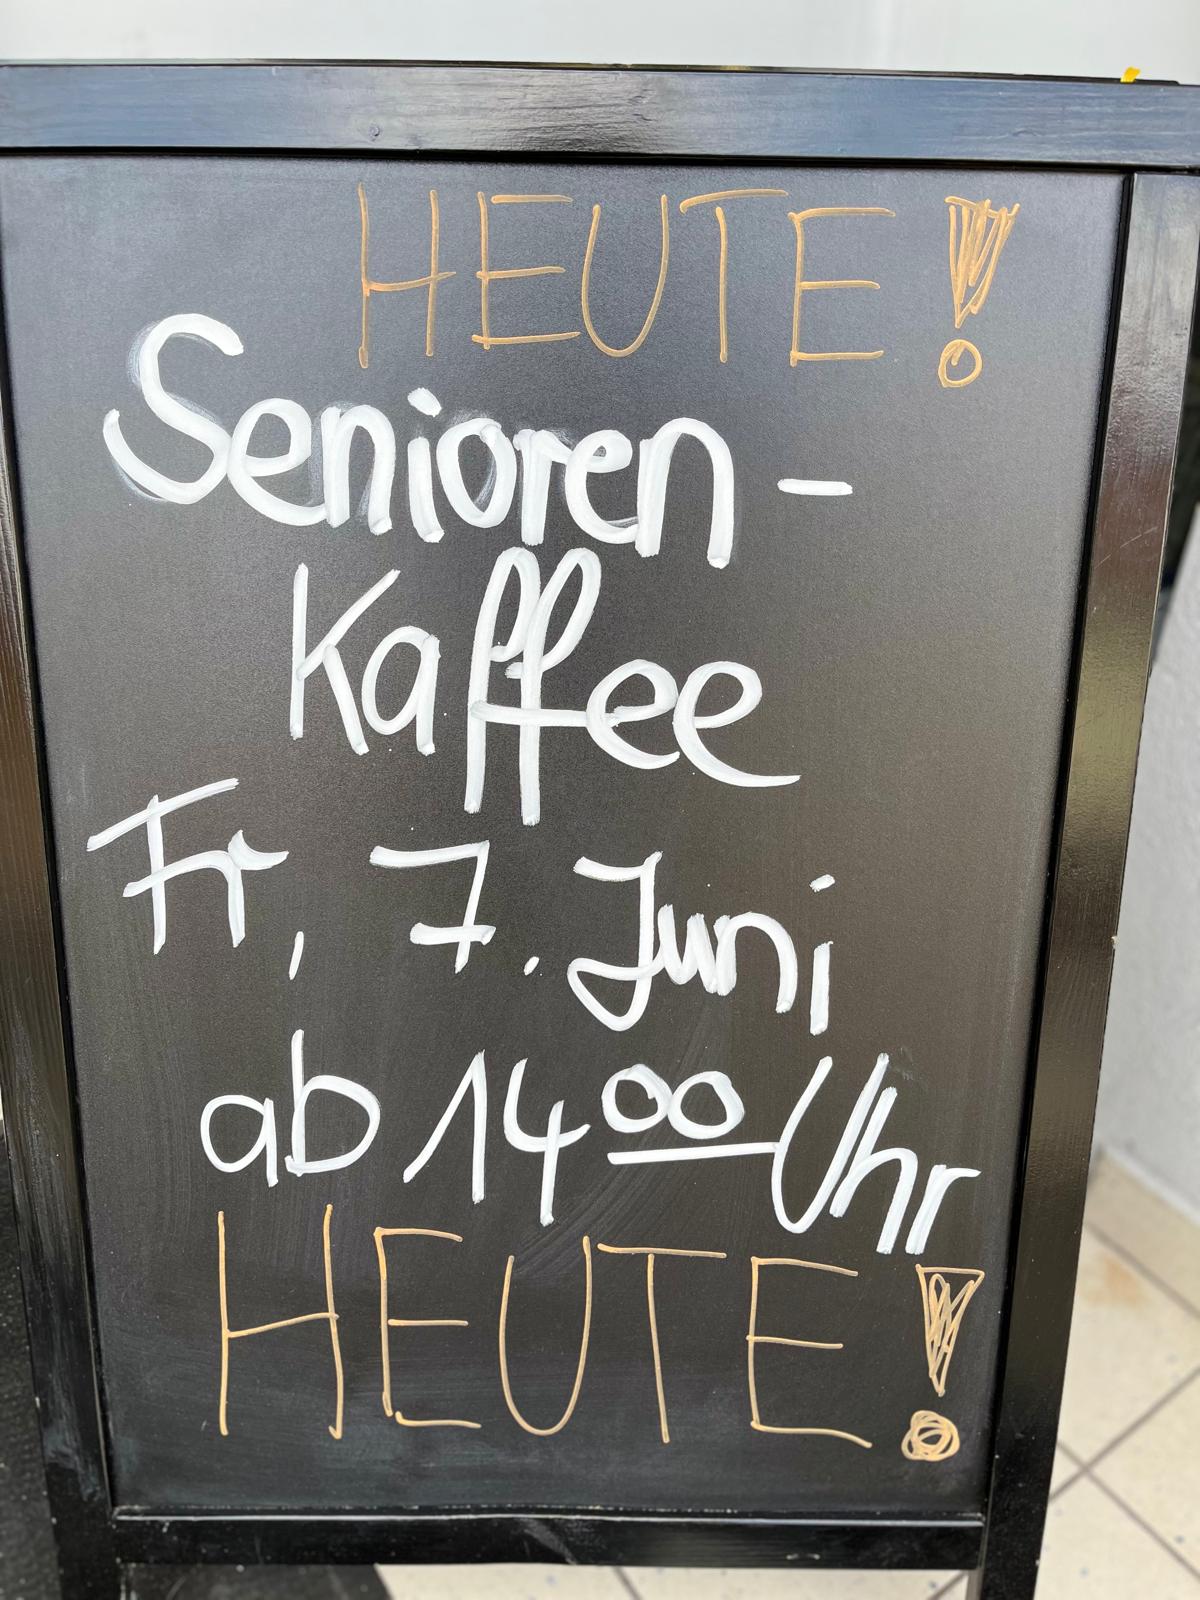 HEUTE!
Senioren-
Kaffee
Fr, 7. Juni
ab 14 00 Uhr
HEUTE!